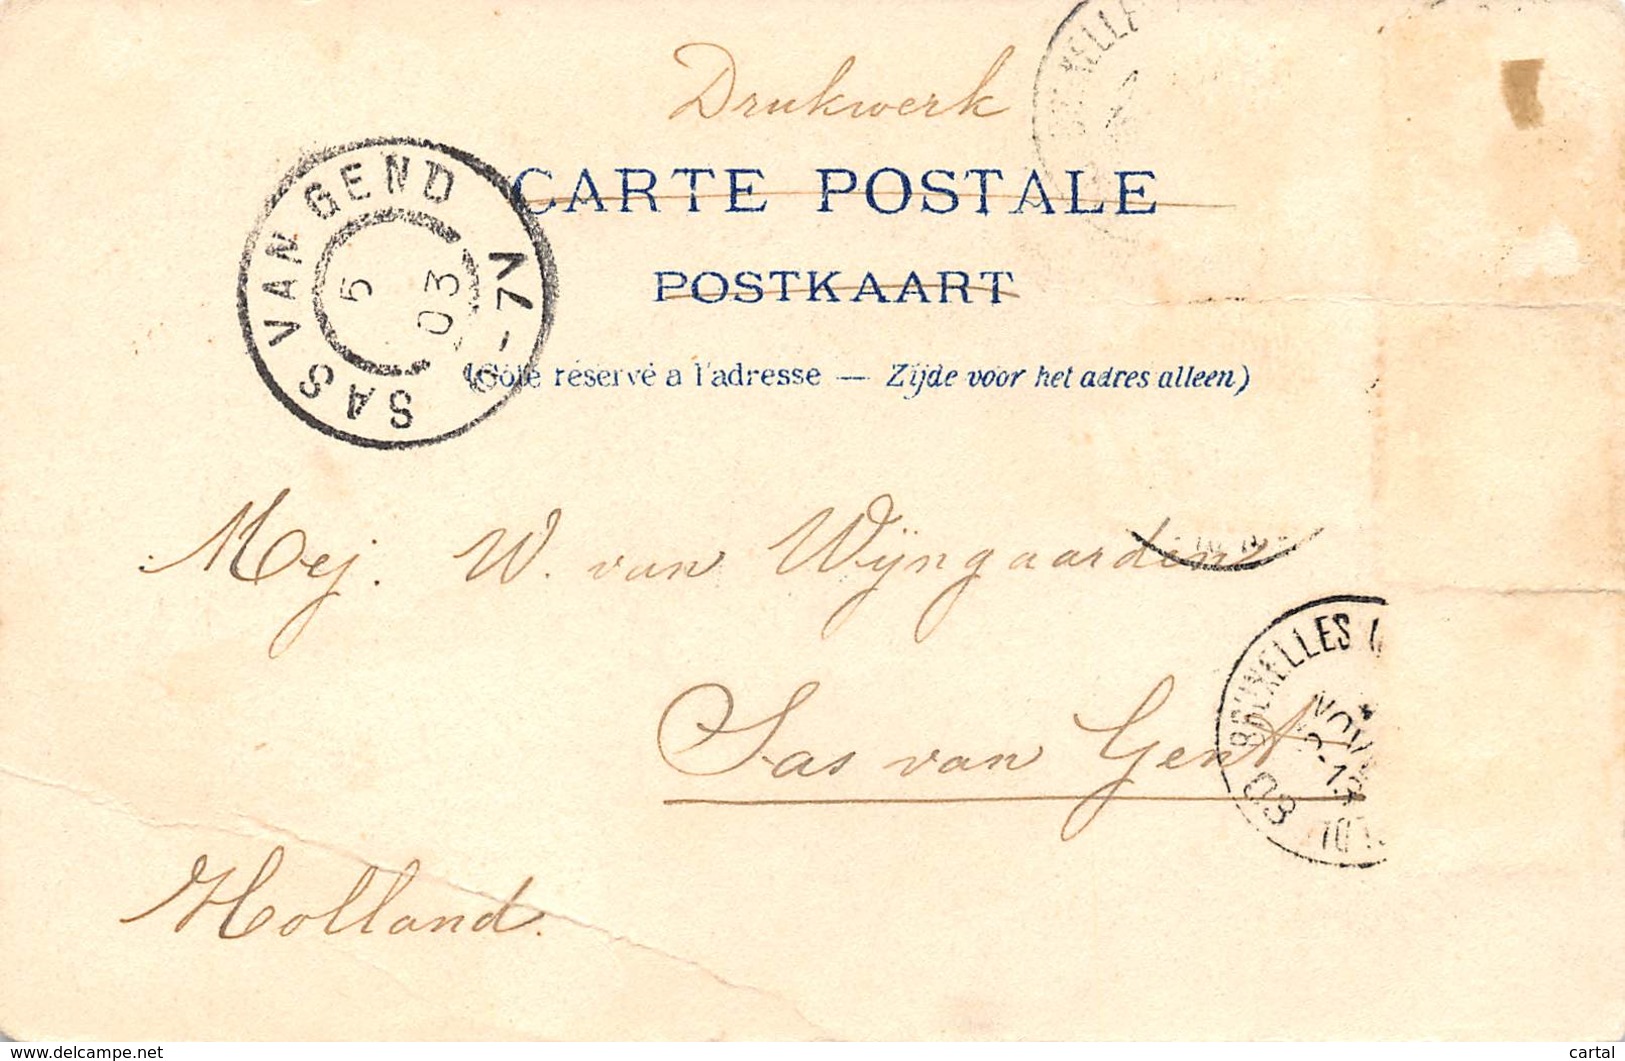 Drukwerk
CARTE POSTALE
POSTKAART
(Côté réservé a l'adresse — Zijde voor het adres alleen)
SAS VAN GEND
5
03
Mej. W. van Wijngaarden
Sas van Gent
Holland.
BRUXELLES
NOV
03
www.delcampe.net
cartal